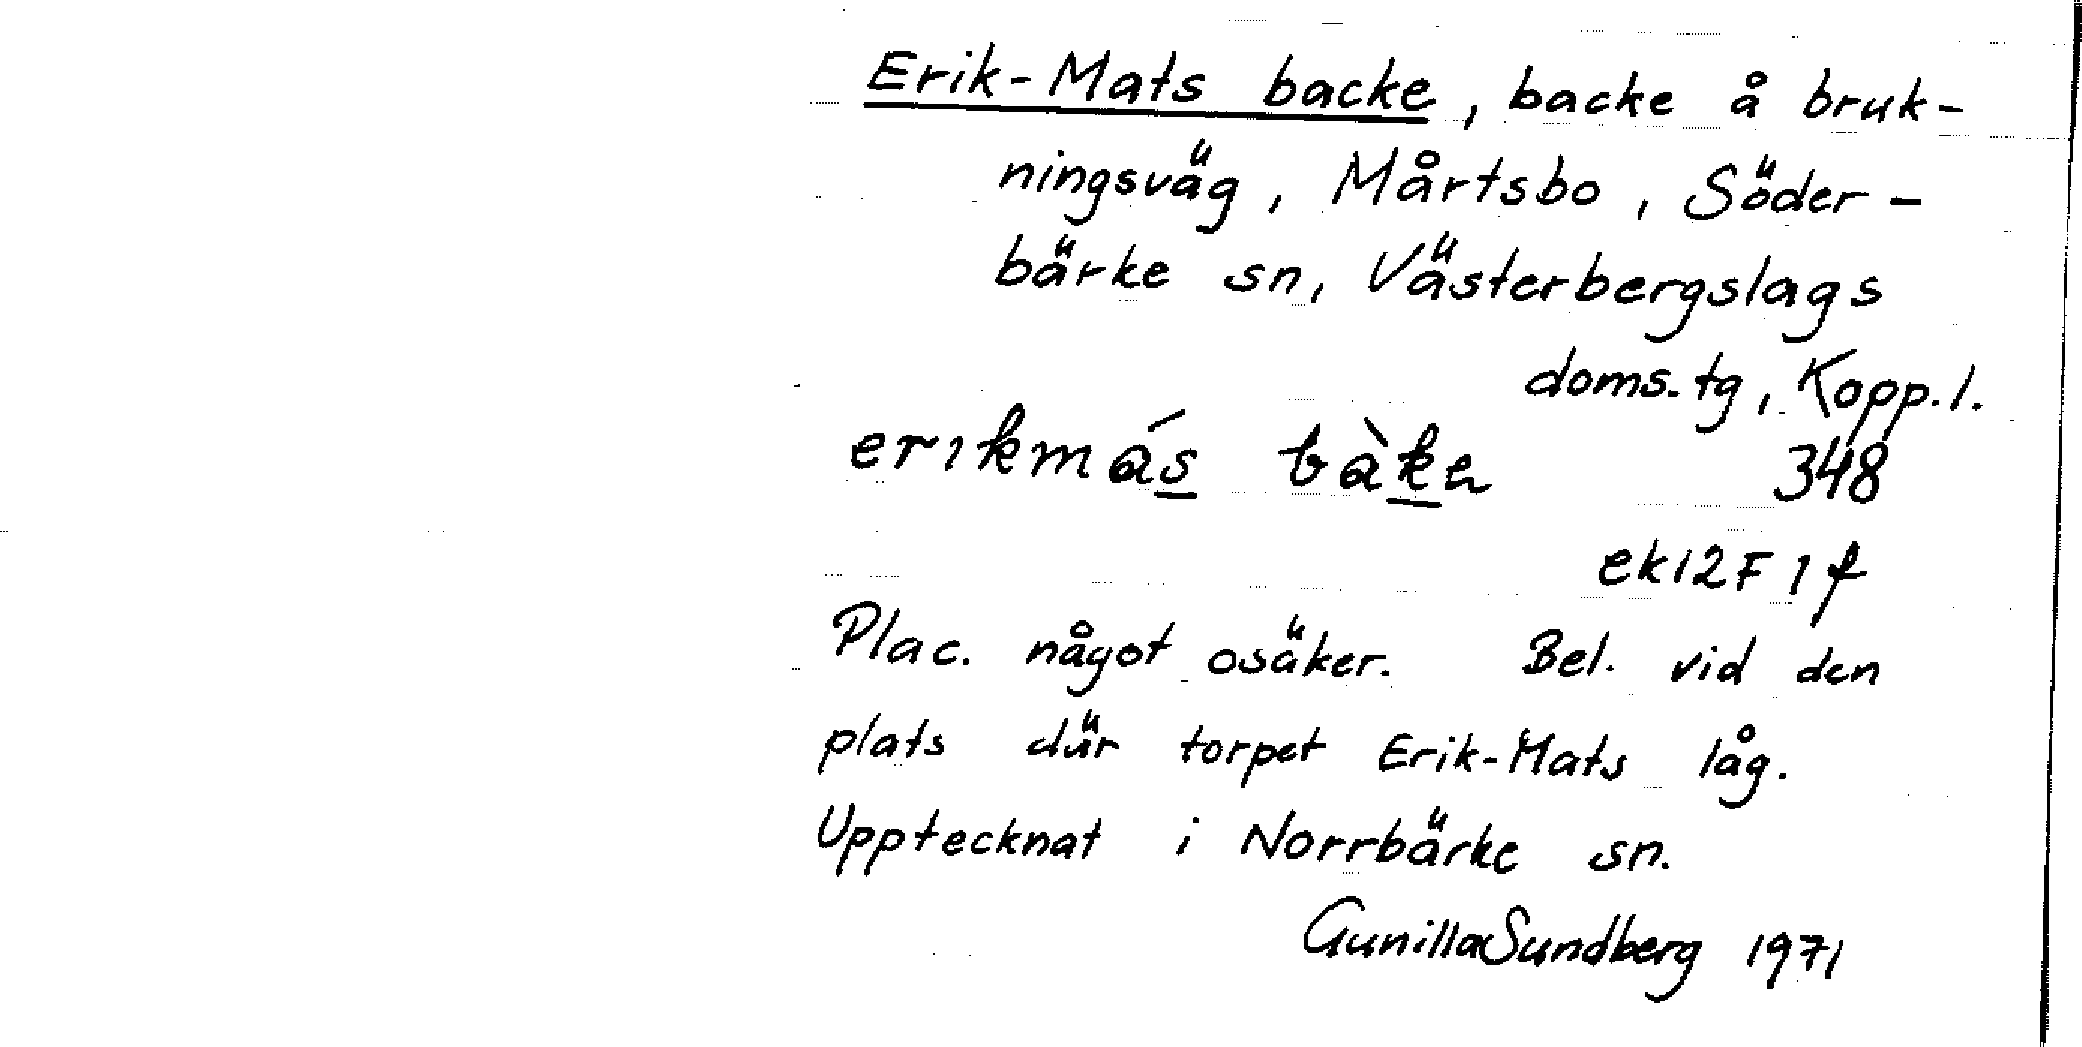 Erik-Mats backe, backe å bruk-
ningsväg, Mårtsbo, Söder-
bärke sn, Västerbergslags
doms.tg, Kopp.l.
erıkmás bàkɐ 348
ek12F 1f
Plac. något osäker. Bel. vid den
plats där torpet Erik-Mats låg.
Upptecknat i Norrbärke sn.
Gunilla Sundberg 1971